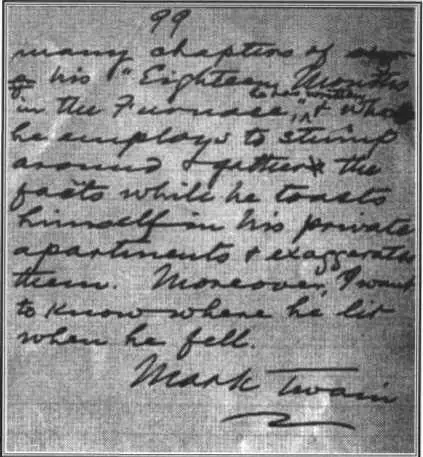 99
many chapters of
his "Eighteen Months
to be written
in the Furnace," & who
he employs to
around & gather the
facts while he toasts
himself in his private
apartments & exaggerates
them. Moreover, I want
to know where he lit
when he fell.
Mark Twain